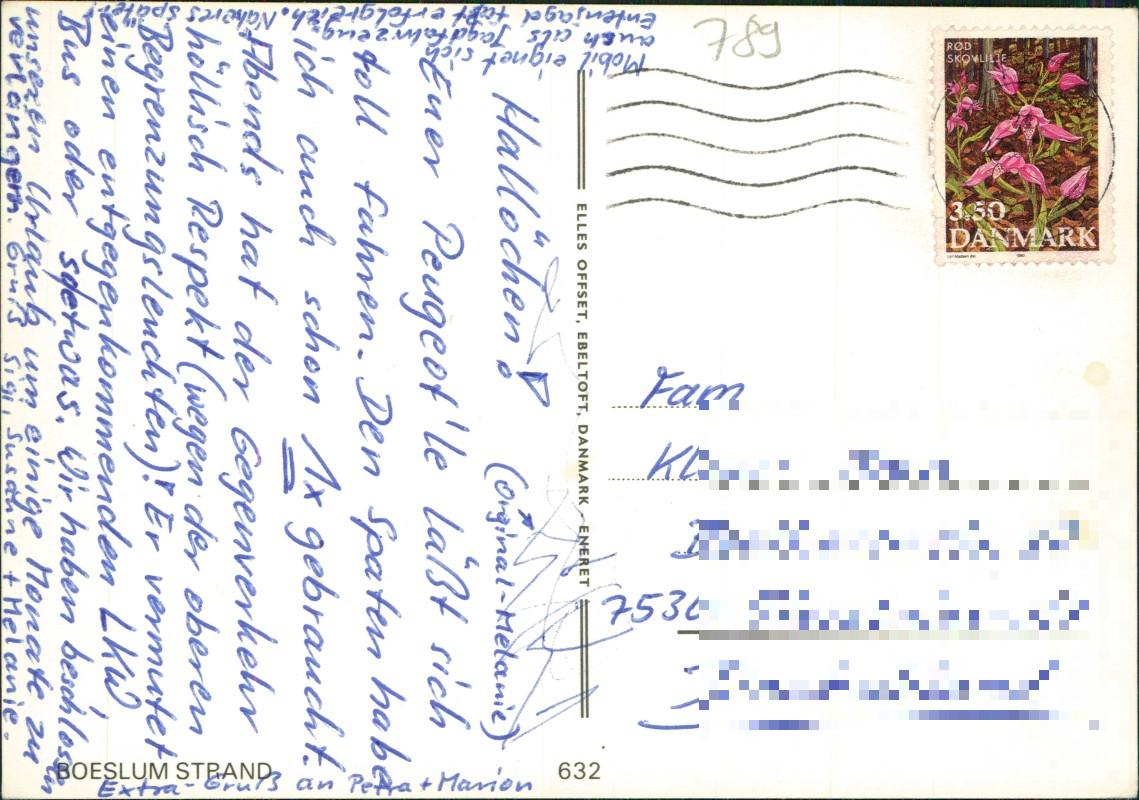 Hallöchen!
Euer Peugeot'le läßt sich
toll fahren. Den Spaten habe
ich auch schon 1x gebraucht.
Abends hat der Gegenverkehr
höllisch Respekt (wegen der oberen
Begrenzungsleuchten)! Er vermutet
einen entgegenkommenden LKW,
Bus oder soetwas. Wir haben beschlossen
unseren Urlaub um einige Monate zu
verlängern. Gruß Sigi, Susanne + Melanie.
(Orginal-Melanie)
Mobil eignet sich
auch als Jagdfahrzeug.
Entenjagd fast erfolgreich. Näheres später!
Extra-Gruß an Petra + Marion
BOESLUM STRAND
632
ELLES OFFSET, EBELTOFT, DANMARK - ENERET
789
RØD
SKOVLILJE
3.50
DANMARK
Fam
Kl